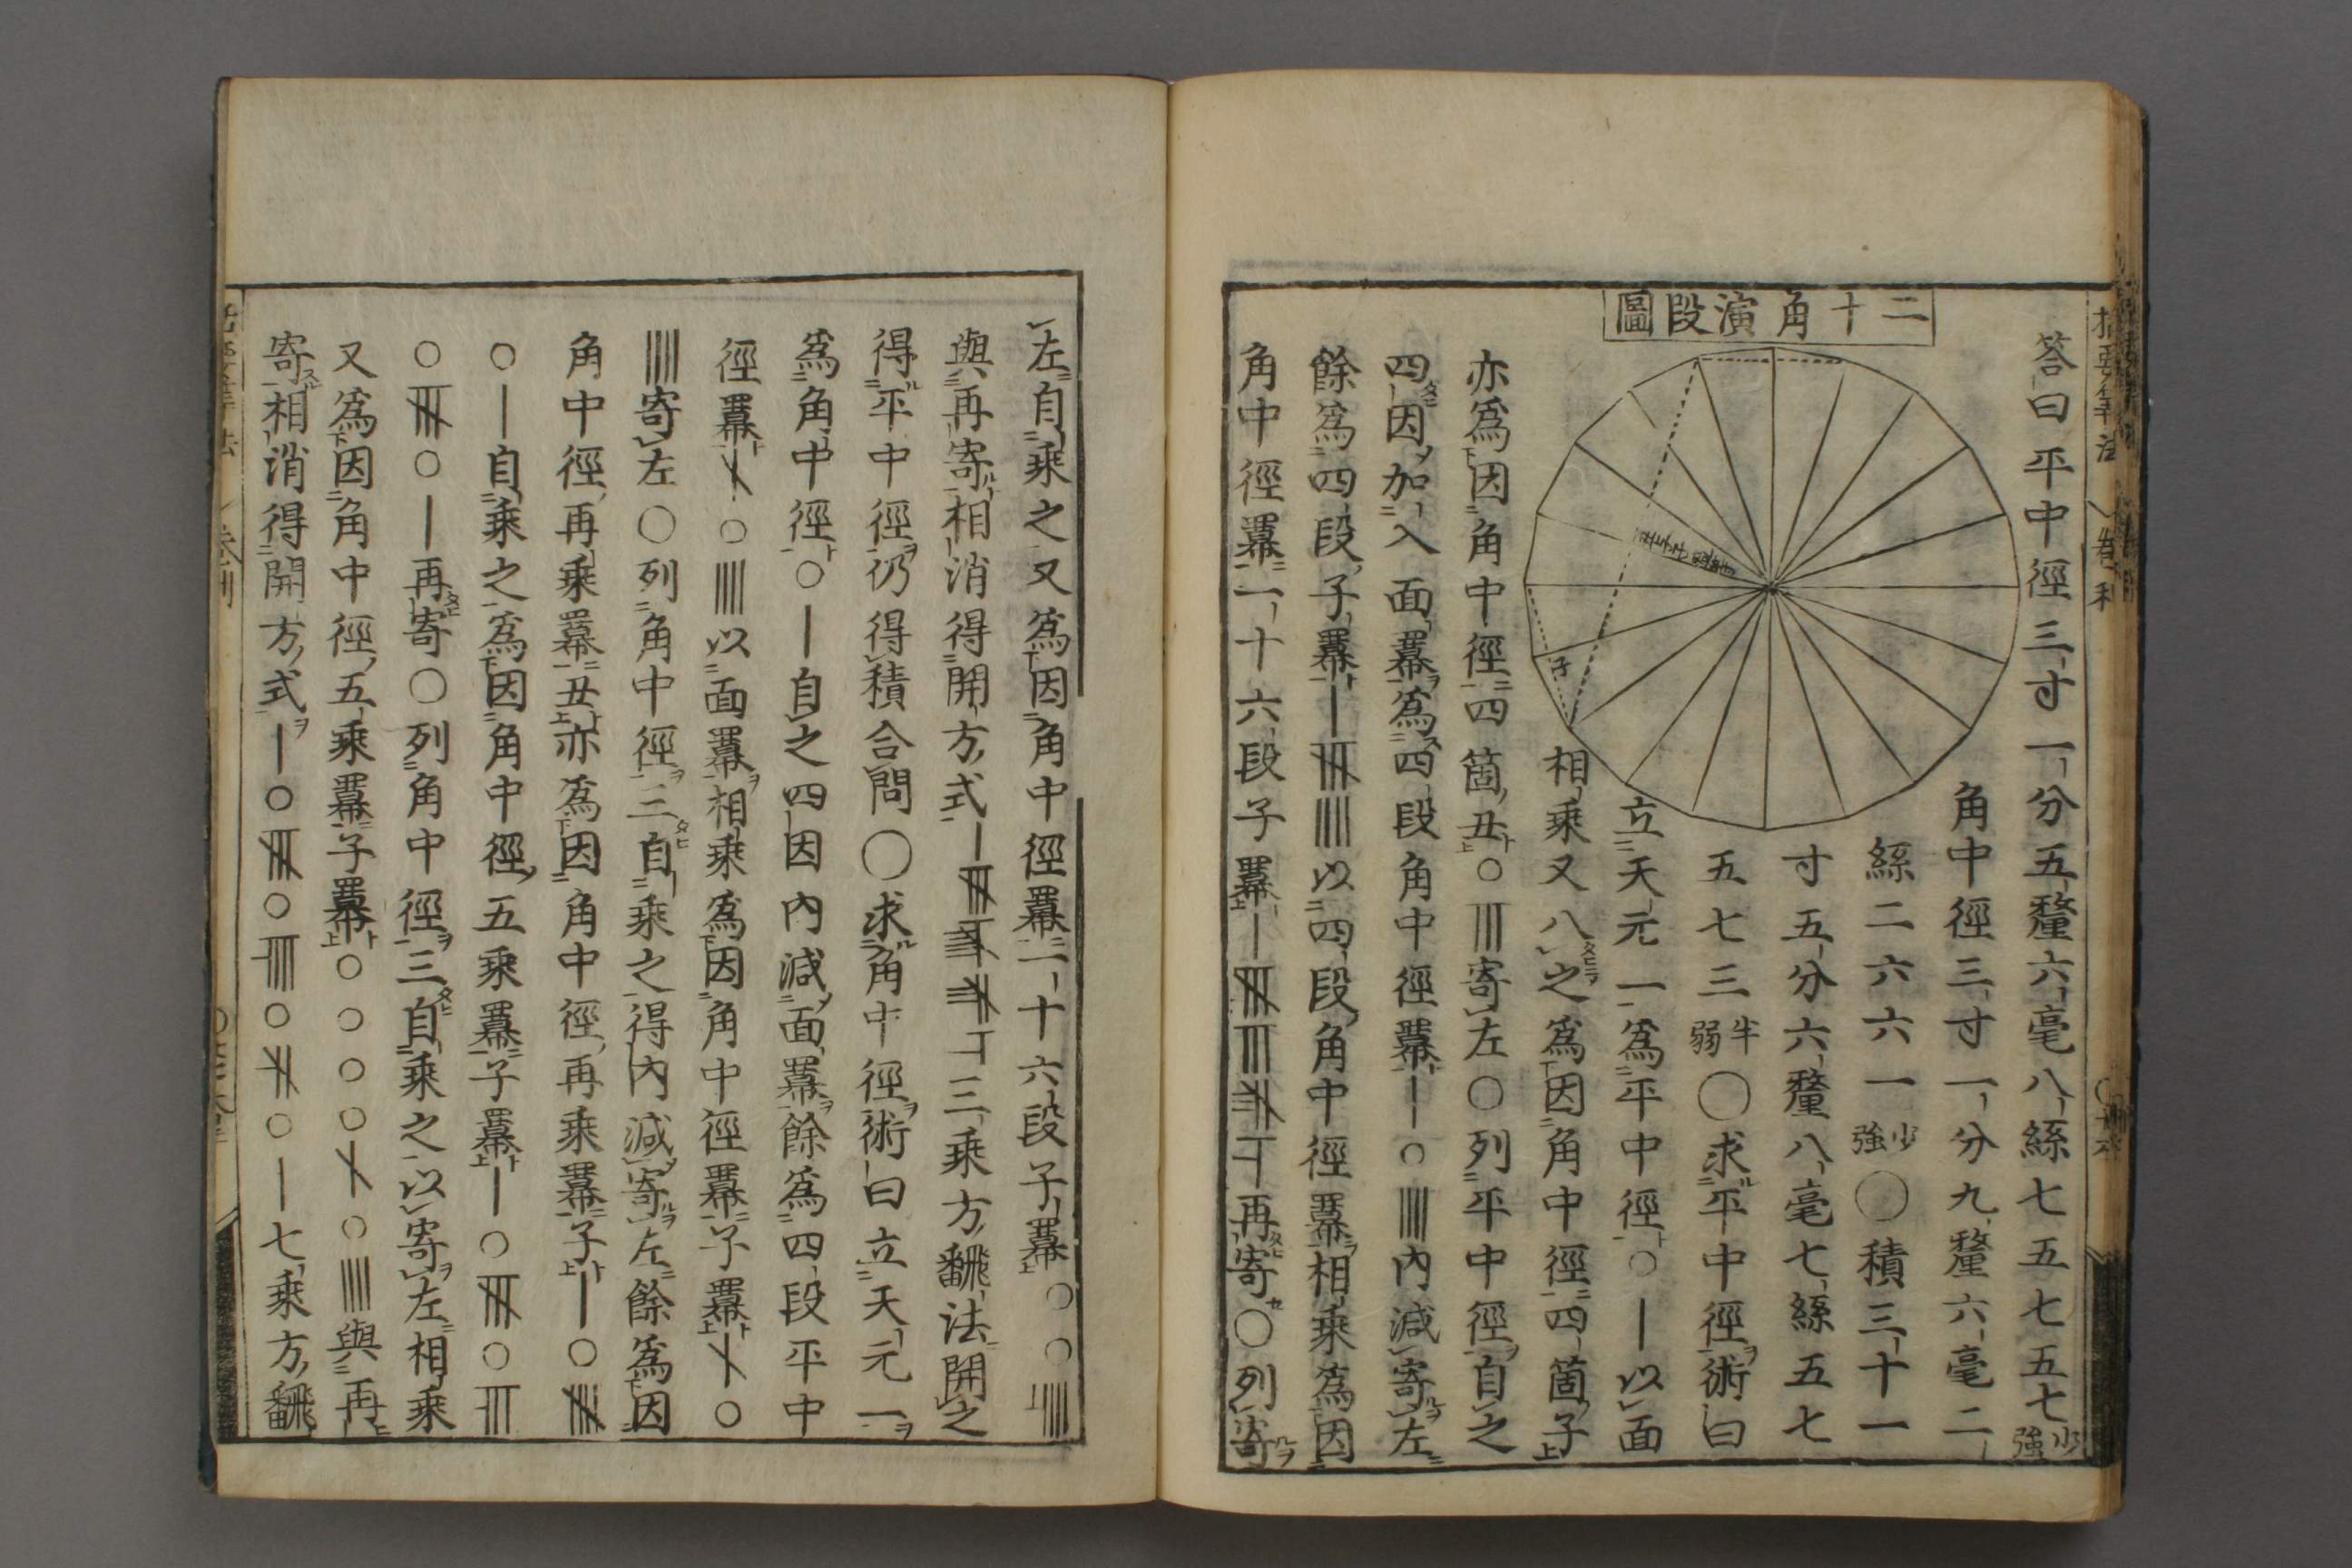 二十角演段圖
答曰平中徑三寸一分五釐六毫八絲七五七五七少強
角中徑三寸一分九釐六毫二
絲二六六一少強〇積三十一
寸五分六釐八毫七絲五七
五七三半弱〇求平中徑術曰
立天元一爲平中徑〇〡以面
相乘又八之爲因角中徑四箇子
亦爲因角中徑四箇丑〇〣寄左〇列平中徑自之
四因加入面冪爲四段角中徑冪〡〇〤內減寄左
餘爲四段子冪以四段角中徑冪相乘爲因
角中徑冪一十六段子冪再寄〇列寄
左自乘之又爲因角中徑冪一十六段子冪
與再寄相消得開方式三乘方飜法開之
得平中徑仍得積合問〇求角中徑術曰立天元一
爲角中徑〇〡自之四因內減面冪餘爲四段平中
徑冪以面冪相乘爲因角中徑冪子冪
寄左〇列角中徑三自乘之得內減寄左餘爲因
角中徑再乘冪丑亦爲因角中徑再乘冪子
〇〡自乘之爲因角中徑五乘冪子冪
再寄〇列角中徑三自乘之以寄左相乘
又爲因角中徑五乘冪子冪與再
寄相消得開方式七乘方飜